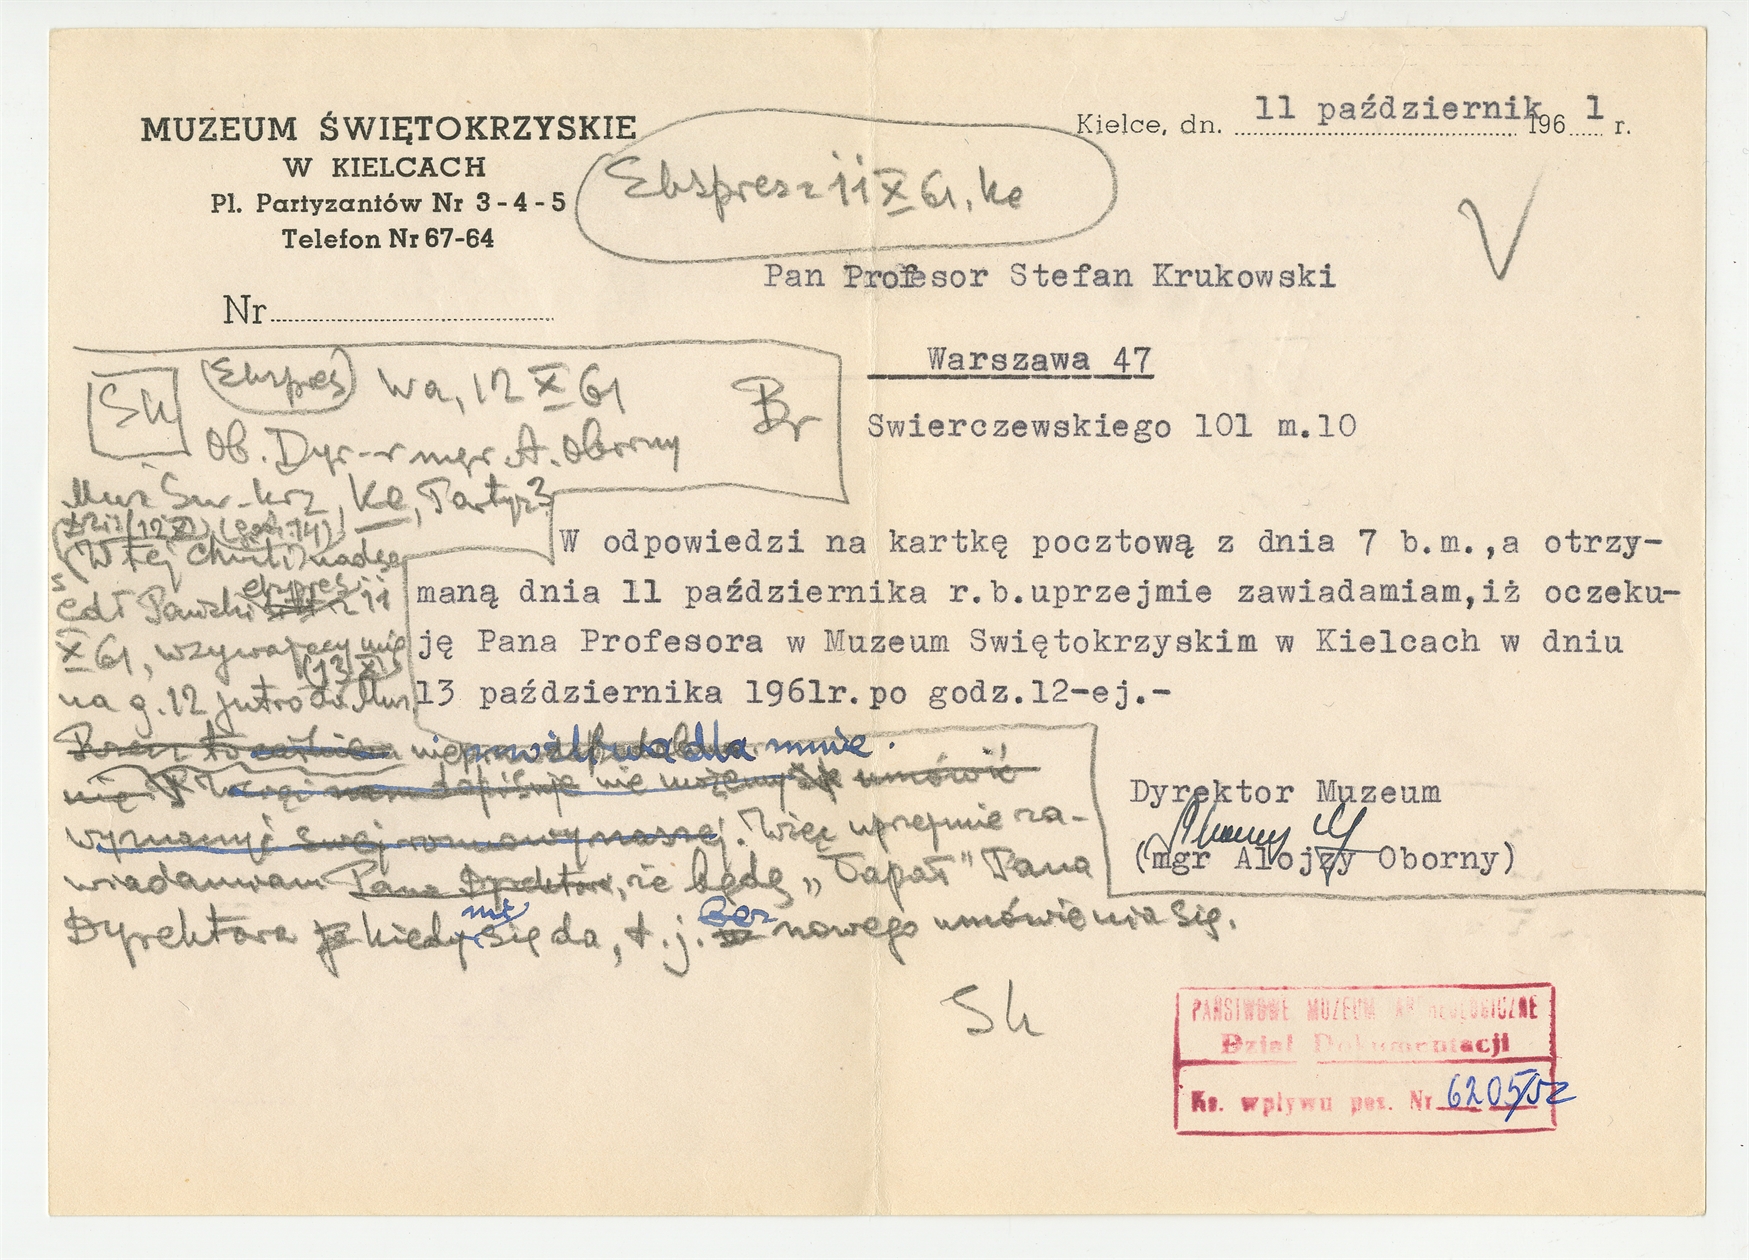 MUZEUM ŚWIĘTOKRZYSKIE
W KIELCACH
Pl. Partyzantów Nr 3-4-5
Telefon Nr 67-64
Nr
Kielce, dn. 11 październik 1961 r.
Ekspres z 11 X 61, Ke
V
Pan Profesor Stefan Krukowski
Warszawa 47
Swierczewskiego 101 m.10
W odpowiedzi na kartkę pocztową z dnia 7 b.m.,a otrzy-
maną dnia 11 października r.b.uprzejmie zawiadamiam,iż oczeku-
ję Pana Profesora w Muzeum Swiętokrzyskim w Kielcach w dniu
13 października 1961r.po godz.12-ej.-
Dyrektor Muzeum
(mgr Alojzy Oborny)
Sk
(Ekspres) Wa, 12 X 61
Br
Ob. Dyr-r mgr A. Oborny
Muz Św-krz, Ke, Partyz 3
dziś (12 X) (godz. 14)
(W tej chwili) nadsz
edł Pański ekspres z 11
X 61, wzywający mię
(13 X)
na g. 12 jutro do Muz.
dla mnie.
nie możemy się umówić
Więc uprzejmie za-
wiadamiam Pana Dyrektora, że będę „łapał" Pana
Dyrektora kiedy mi się da, t.j. bez nowego umówienia się.
Sk
PAŃSTWOWE MUZEUM ARCHEOLOGICZNE
Dział Dokumentacji
Ks. wpływu poz. Nr 6205/52